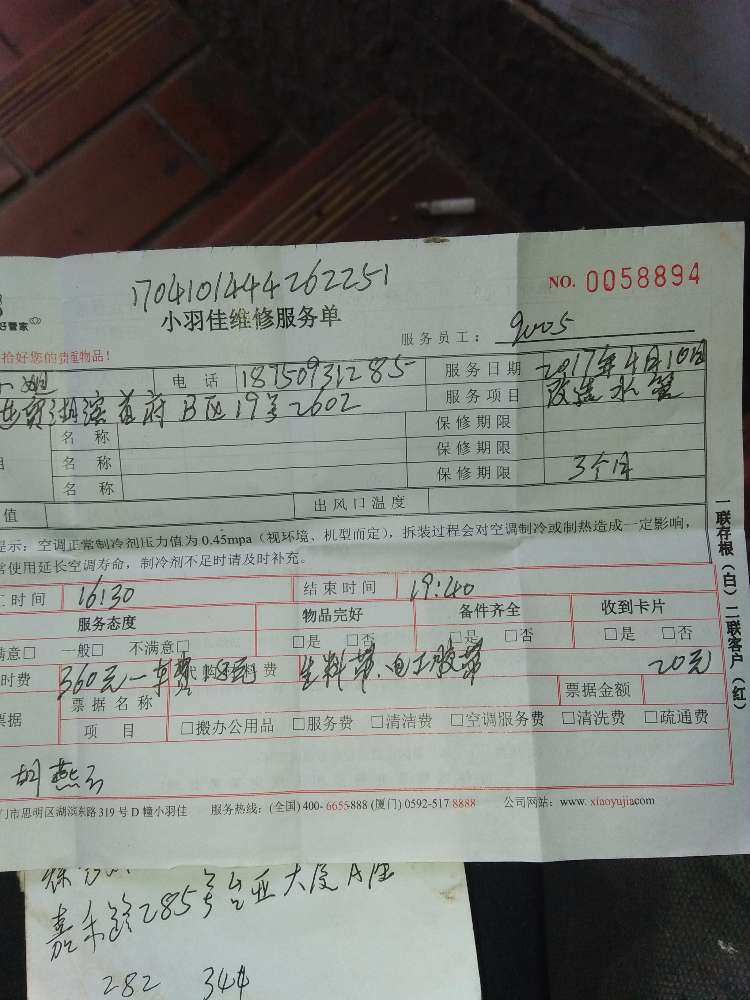 1704101444262251
NO. 0058894
好管家
小羽佳维修服务单
服务员工: 9005
拾好您的贵重物品!
小姐 电话 18750931285 服务日期 2017年4月10日
湖滨首府B区19号2602 服务项目 改造水管
名称 保修期限
名称 保修期限
名称 保修期限 3个月
值 出风口温度
提示: 空调正常制冷剂压力值为0.45mpa (视环境、机型而定), 拆装过程会对空调制冷或制热造成一定影响,
常使用延长空调寿命, 制冷剂不足时请及时补充。
工时间 16:30 结束时间 19:40
服务态度 物品完好 备件齐全 收到卡片
满意□ 一般□ 不满意□ □是 □否 □是 □否 □是 □否
时费 360元一车费18元 代购材料费 生料带、电工胶带 20元
票据 票据名称 票据金额
项目 □搬办公用品 □服务费 □清洁费 □空调服务费 □清洗费 □疏通费
胡燕
门市思明区湖滨东路319号D幢小羽佳 服务热线: (全国) 400-6655888 (厦门) 0592-517 8888 公司网站: www. xiaoyujiacom
一联存根(白) 二联客户(红)
嘉禾路285号台亚大厦A座
282 344